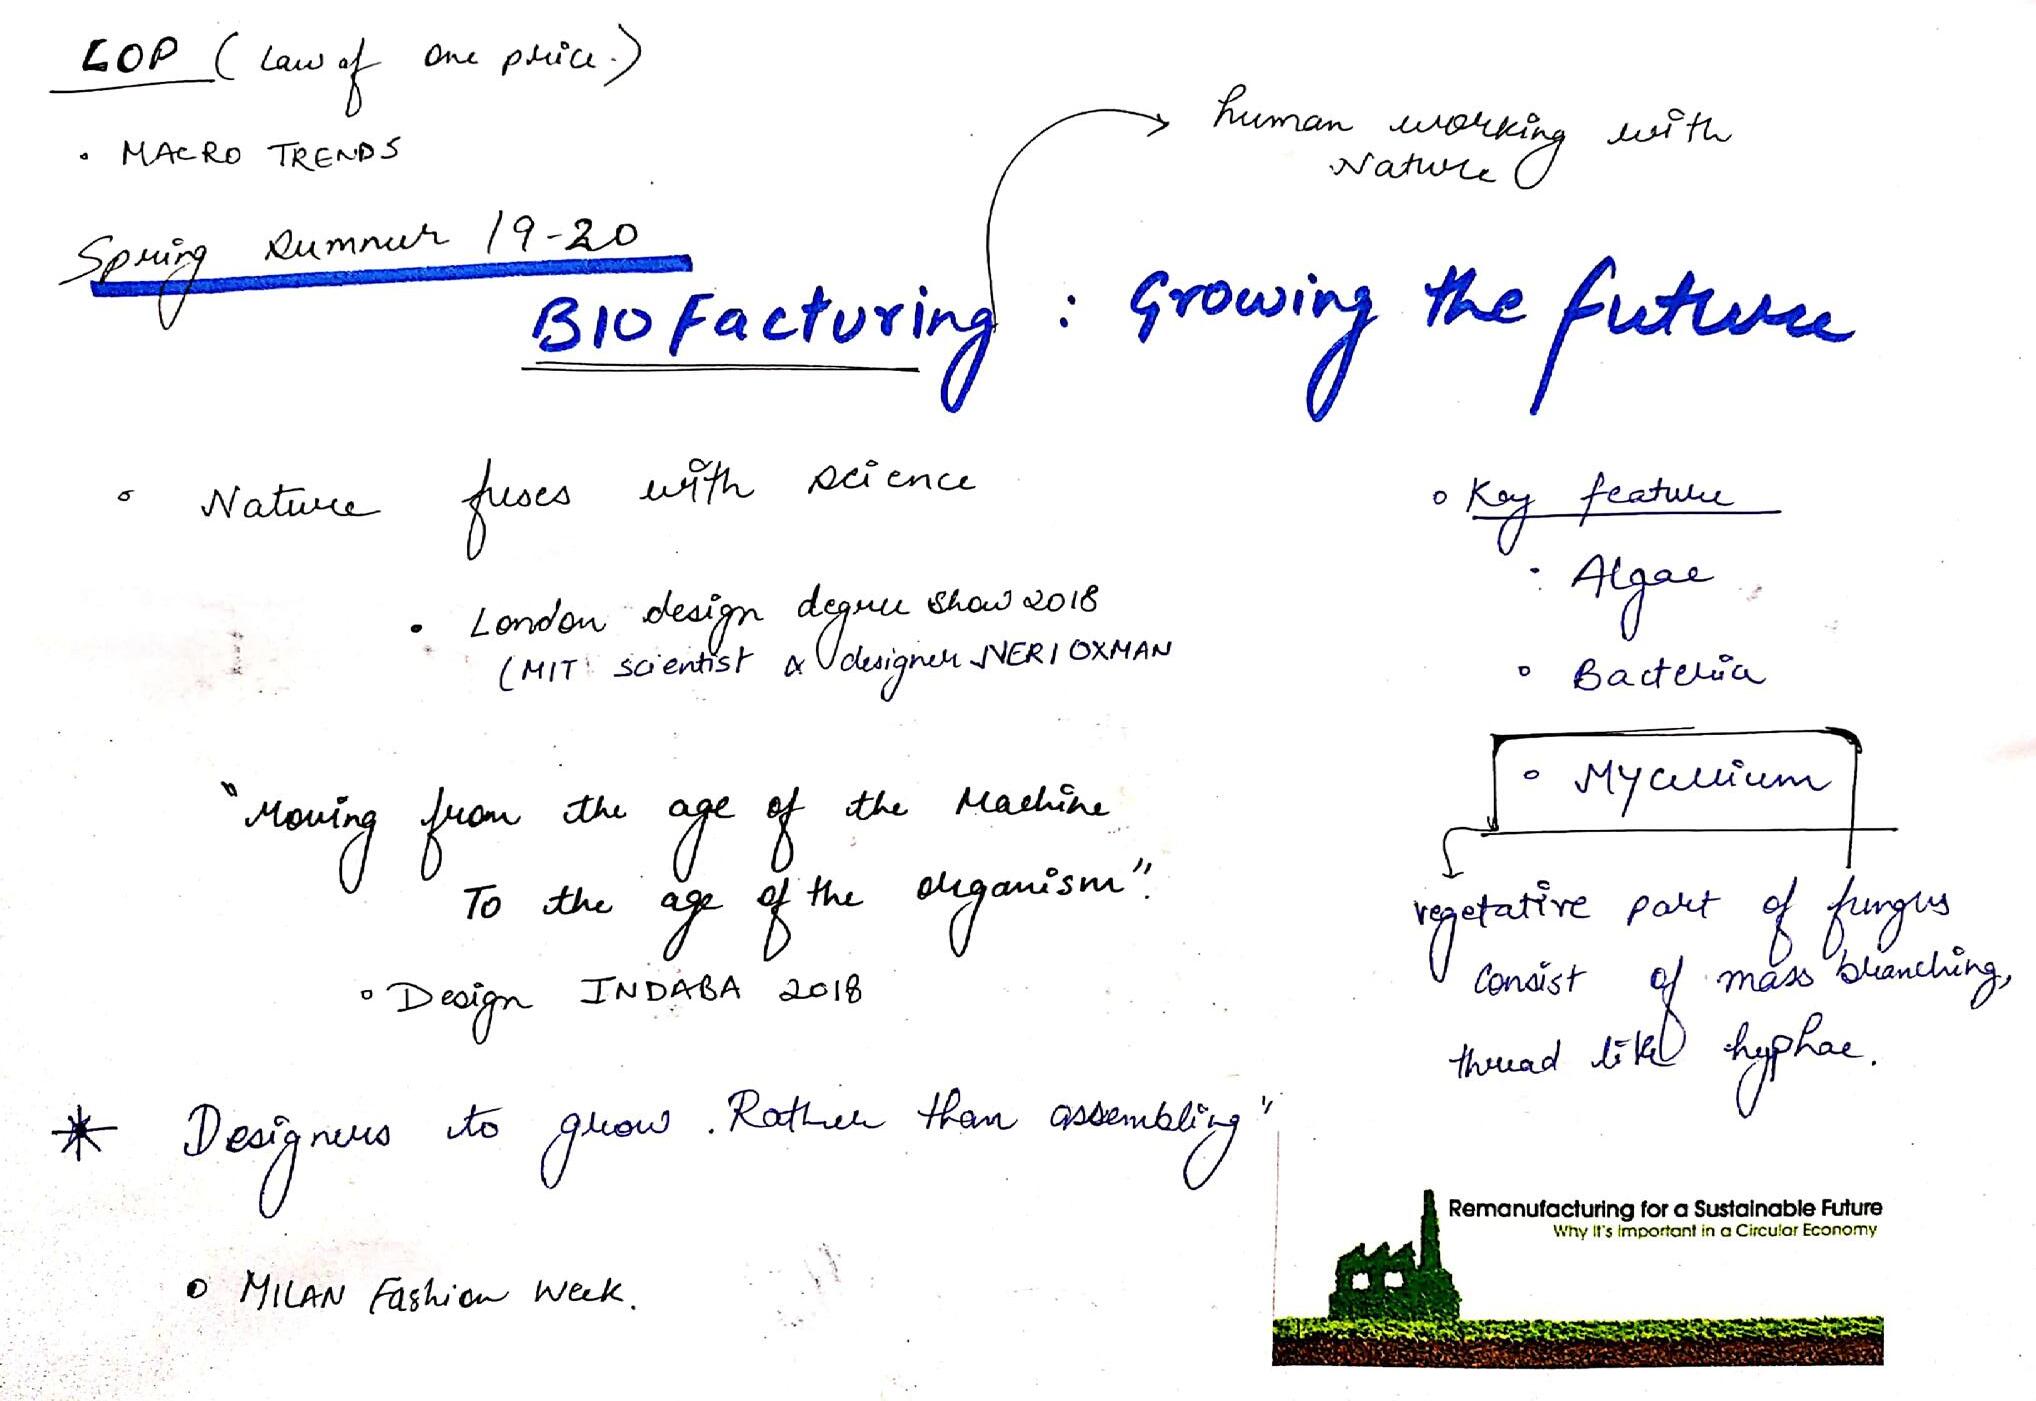 LOP (Law of one price.)
• MACRO TRENDS
human working with
Nature
Spring Summer 19-20
BIOFacturing : Growing the future
• Nature fuses with science
• London design degree show 2018
(MIT scientist & designer NERI OXMAN
"Moving from the age of the Machine
To the age of the organism".
• Design INDABA 2018
* Designers to grow. Rather than assembling"
• MILAN Fashion Week.
• Key feature
• Algae
• Bacteria
• Mycellium
vegetative part of fungus
Consist of mass branching,
thread like hyphae.
Remanufacturing for a Sustainable Future
Why It's Important in a Circular Economy